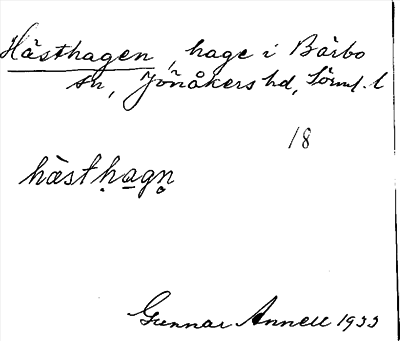 Hästhagen, hage i Bärbo
sn, Jönåkers hd, Sörml. l
18
hästḥa̲gn̥
Gunnar Annell 1933